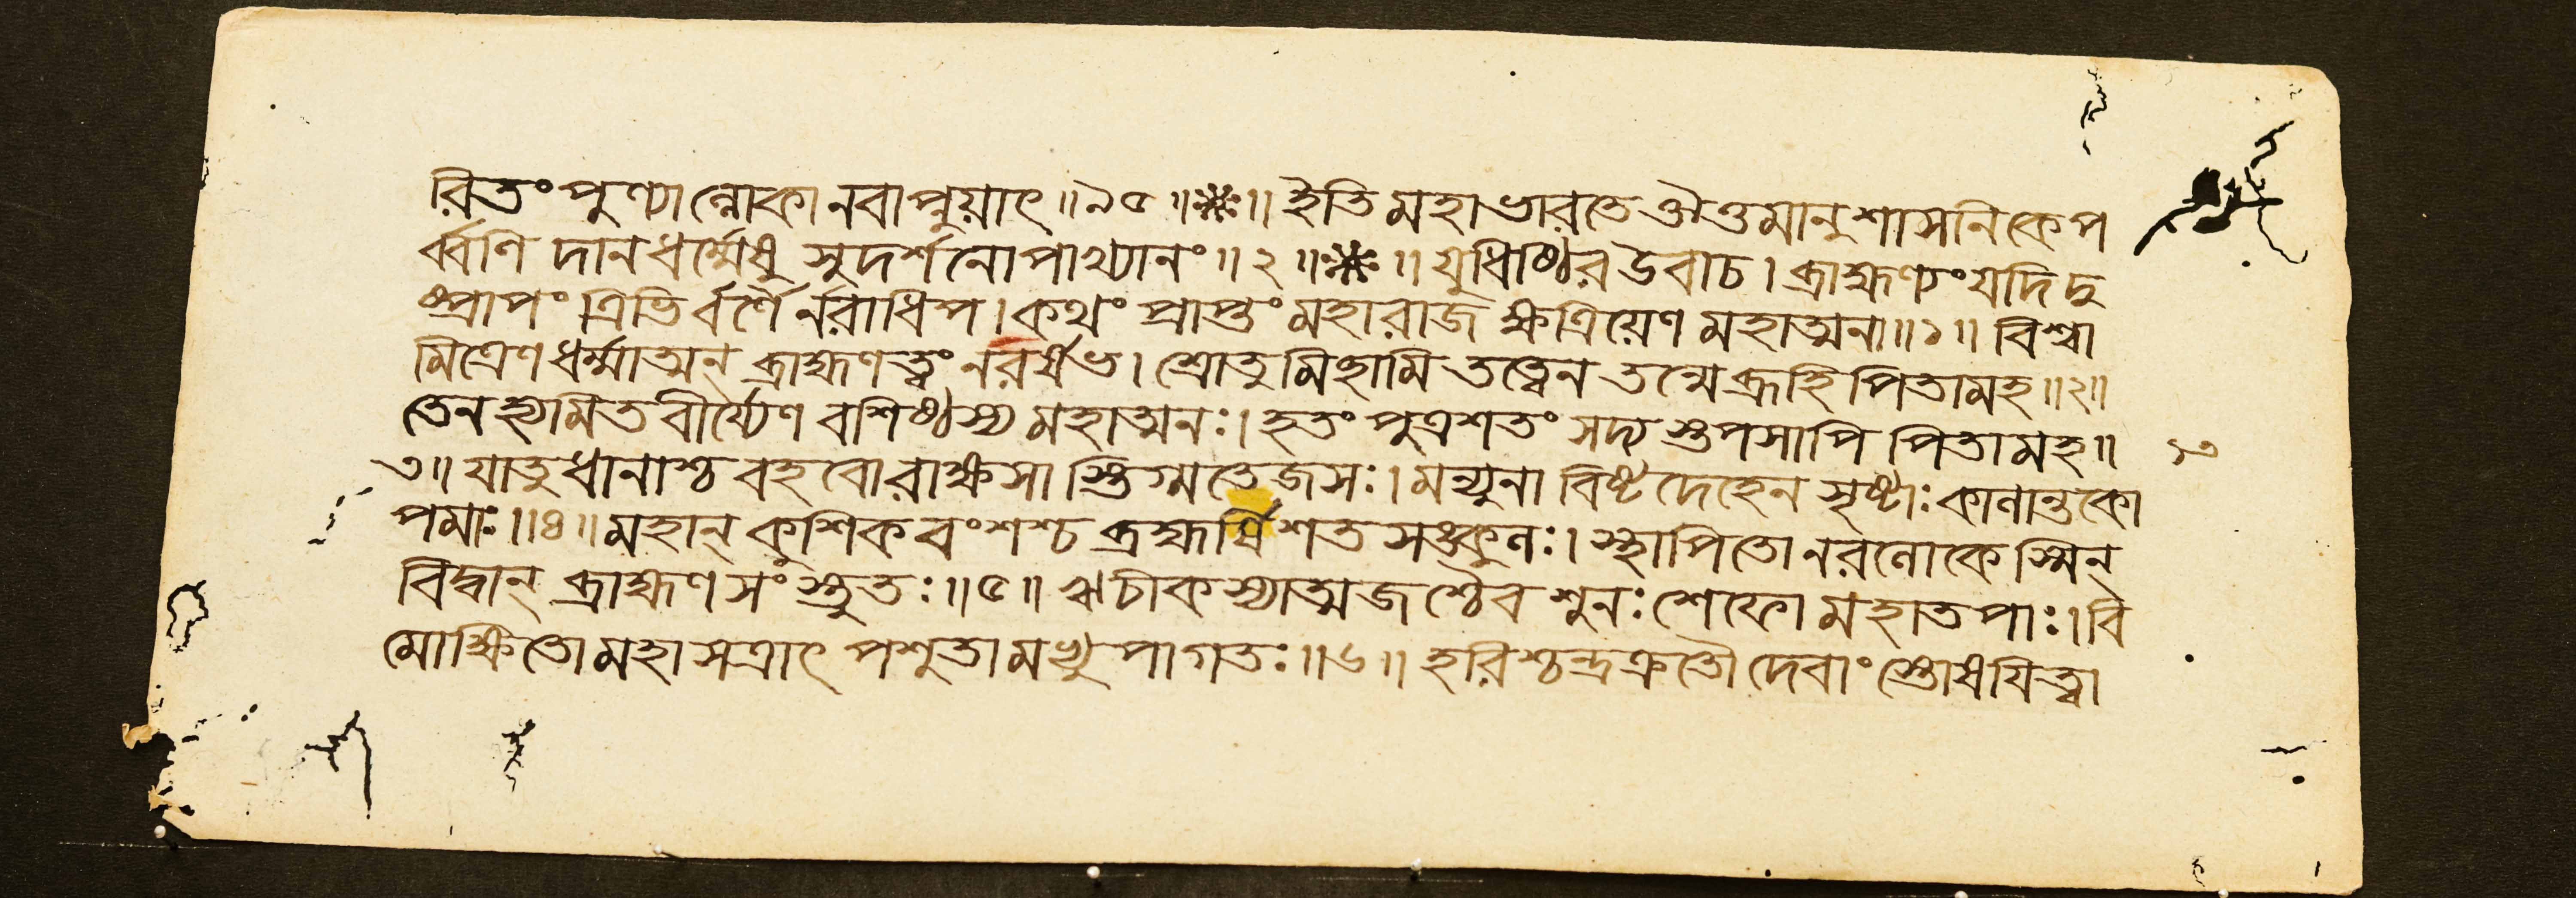 রিতং পুণ্যান্লোকানবাপ্নুয়াৎ ॥ ৯৫ ॥ ❋ ॥ ইতি মহাভারতে ঔত্তমানুশাসনিকে প
র্ব্বণি দানধর্ম্মেষু সুদর্শনোপাখ্যানং ॥ ২ ॥ ❋ ॥ যুধিষ্ঠির উবাচ । ব্রাহ্মণ্যং যদি দু
ষ্প্রাপং ত্রিভির্বর্ণৈর্নরাধিপ । কথং প্রাপ্তং মহারাজ ক্ষত্রিয়েণ মহাত্মনা ॥ ১ ॥ বিশ্বা
মিত্রেণ ধর্ম্মাত্মন্ ব্রাহ্মণত্বং নরর্ষভ । শ্রোতুমিচ্ছামি তত্ত্বেন তন্মে ব্রূহি পিতামহ ॥ ২ ॥
তেন হ্যমিতবীর্য্যেণ বশিষ্ঠস্য মহাত্মনঃ । হতং পুত্রশতং সদ্যস্তপসাপি পিতামহ ॥
৩ ॥ যাতুধানাশ্চ বহবো রাক্ষসাস্তিগ্মতেজসঃ । মন্যুনাবিষ্টদেহেন সৃষ্টাঃ কালান্তকো
পমাঃ ॥ ৪ ॥ মহান্ কুশিকবংশশ্চ ব্রহ্মর্ষিশতসঙ্কুলঃ । স্থাপিতো নরলোকেস্মিন্
বিদ্বান্ ব্রাহ্মণসংস্তুতঃ ॥ ৫ ॥ ঋচীকস্যাত্মজশ্চৈব শুনঃশেফো মহাতপাঃ । বি
মোক্ষিতো মহাসত্রাৎ পশুতামভ্যুপাগতঃ ॥ ৬ ॥ হরিশ্চন্দ্রক্রতৌ দেবাংস্তোষযিত্বা
১৩